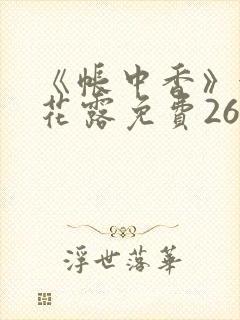 《帐中香》
花露免費26
浮世落華